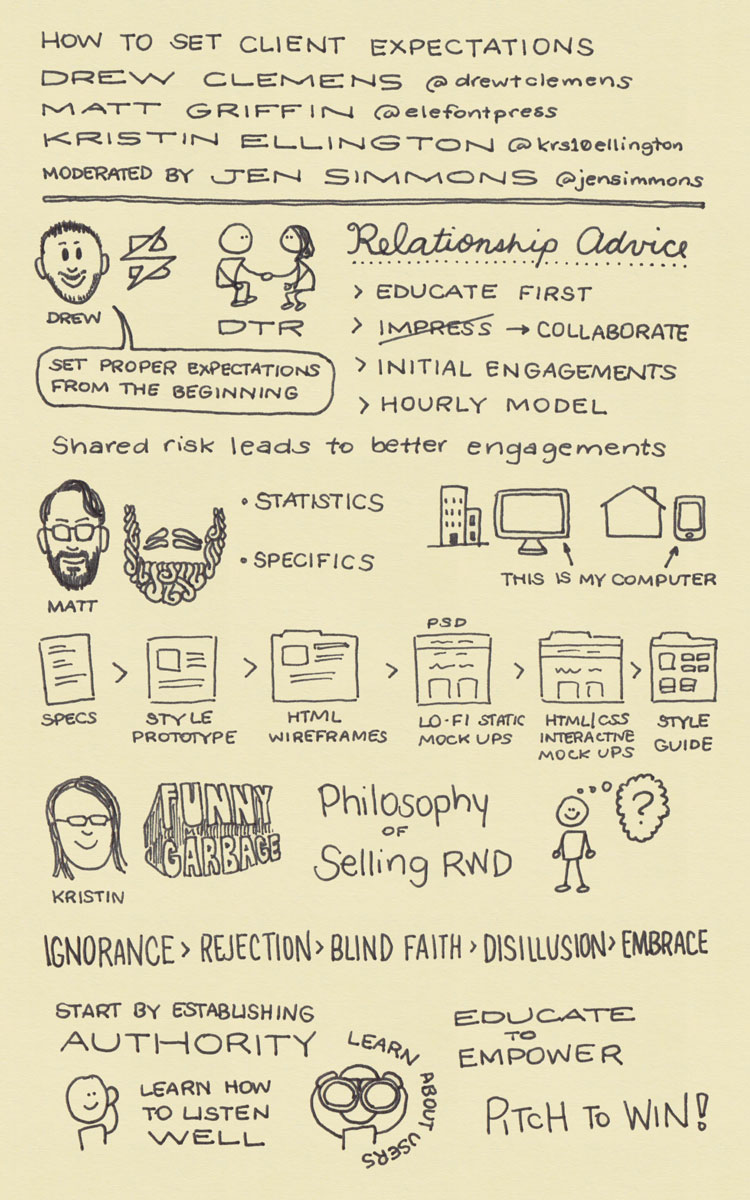 HOW TO SET CLIENT EXPECTATIONS
DREW CLEMENS @drewtclemens
MATT GRIFFIN @elefontpress
KRISTIN ELLINGTON @krs10ellington
MODERATED BY JEN SIMMONS @jensimmons
DREW
SET PROPER EXPECTATIONS
FROM THE BEGINNING
DTR
Relationship Advice
> EDUCATE FIRST
> IMPRESS → COLLABORATE
> INITIAL ENGAGEMENTS
> HOURLY MODEL
Shared risk leads to better engagements
MATT
• STATISTICS
• SPECIFICS
THIS IS MY COMPUTER
SPECS
>
STYLE
PROTOTYPE
>
HTML
WIREFRAMES
>
PSD
LO-FI STATIC
MOCK UPS
>
HTML/CSS
INTERACTIVE
MOCK UPS
>
STYLE
GUIDE
KRISTIN
FUNNY
GARBAGE
Philosophy
OF
Selling RWD
?
IGNORANCE > REJECTION > BLIND FAITH > DISILLUSION > EMBRACE
START BY ESTABLISHING
AUTHORITY
LEARN HOW
TO LISTEN
WELL
LEARN ABOUT USERS
EDUCATE
TO
EMPOWER
PITCH TO WIN!